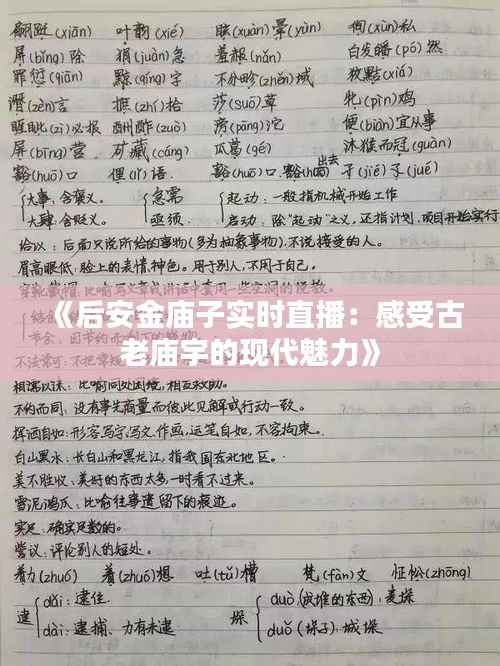 翩跹(xiān) 叶韵(xié) 眩(xuàn)晕(yùn) 徇(xùn)私
屏(bǐng)除 狷(juàn)急 羞赧(nǎn) 白发皤(pó)然
罪愆(qiān) 黥(qíng)字 不分畛(zhěn)域 狡黠(xiá)
谮(zèn)言 摭(zhí)拾 莎(suō)草 牝(pìn)鸡
睚眦(zì)必报 酬酢(zuò) 滂(pāng)沱 便(biàn)宜从事
屏(bīng)营 矿藏(cáng) 瓜葛(gé) 沐猴而冠(guàn)
豁(huō)口 俚(lǐ)语 豁(huō)口 豁(huō)出去 孑(jié)孓(jué)
大事:含褒义。 急需 起动:一般指机械开始工作
大肆:含贬义。 亟须 启动:除“起动”之义,还指计划、项目开始实行
给以:后面只说所给的事物(多为抽象事物),不说接受的人。
眉高眼低:脸上的表情,神色。用于别人,不用于自己。
《后安金庙子实时直播:感受古
老庙宇的现代魅力》
相濡以沫:比喻同处困境,相互救助。
不约而同:没有事先商量而彼此见解或行动一致。
挥洒自如:形容写字,写文,作画,运笔自如,不容拘束。
白山黑水:长白山和黑龙江,指我国东北地区。
美不胜收:美好的东西太多,一时看不过来。
雪泥鸿爪:比喻往事遗留下的痕迹。
实足:确实足数的。
訾议:评论别人的短处。
着力(zhuó) 着(zhuó)想 吐(tǔ)槽 梵(fàn)文 怔忪(zhōng)
逮 dǎi:逮住 垛 duǒ(成堆的东西):麦垛
dài:逮捕、力有未逮 duǒ(垛子):城垛